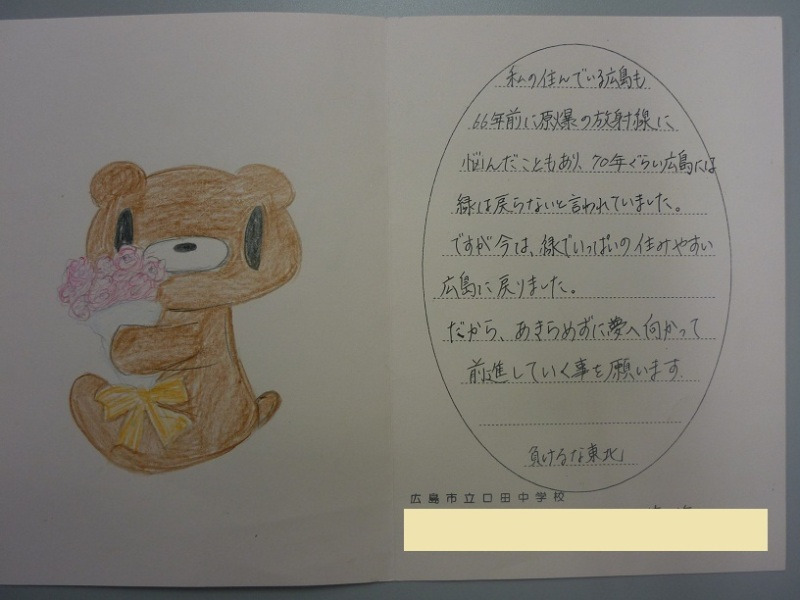 私の住んでいる広島も
66年前に原爆の放射線に、
悩んだこともあり、70年ぐらい広島には
緑は戻らないと言われていました。
ですが今は、緑でいっぱいの住みやすい
広島に戻りました。
だから、あきらめずに夢へ向かって
前進していく事を願います
負けるな東北」
広島市立口田中学校